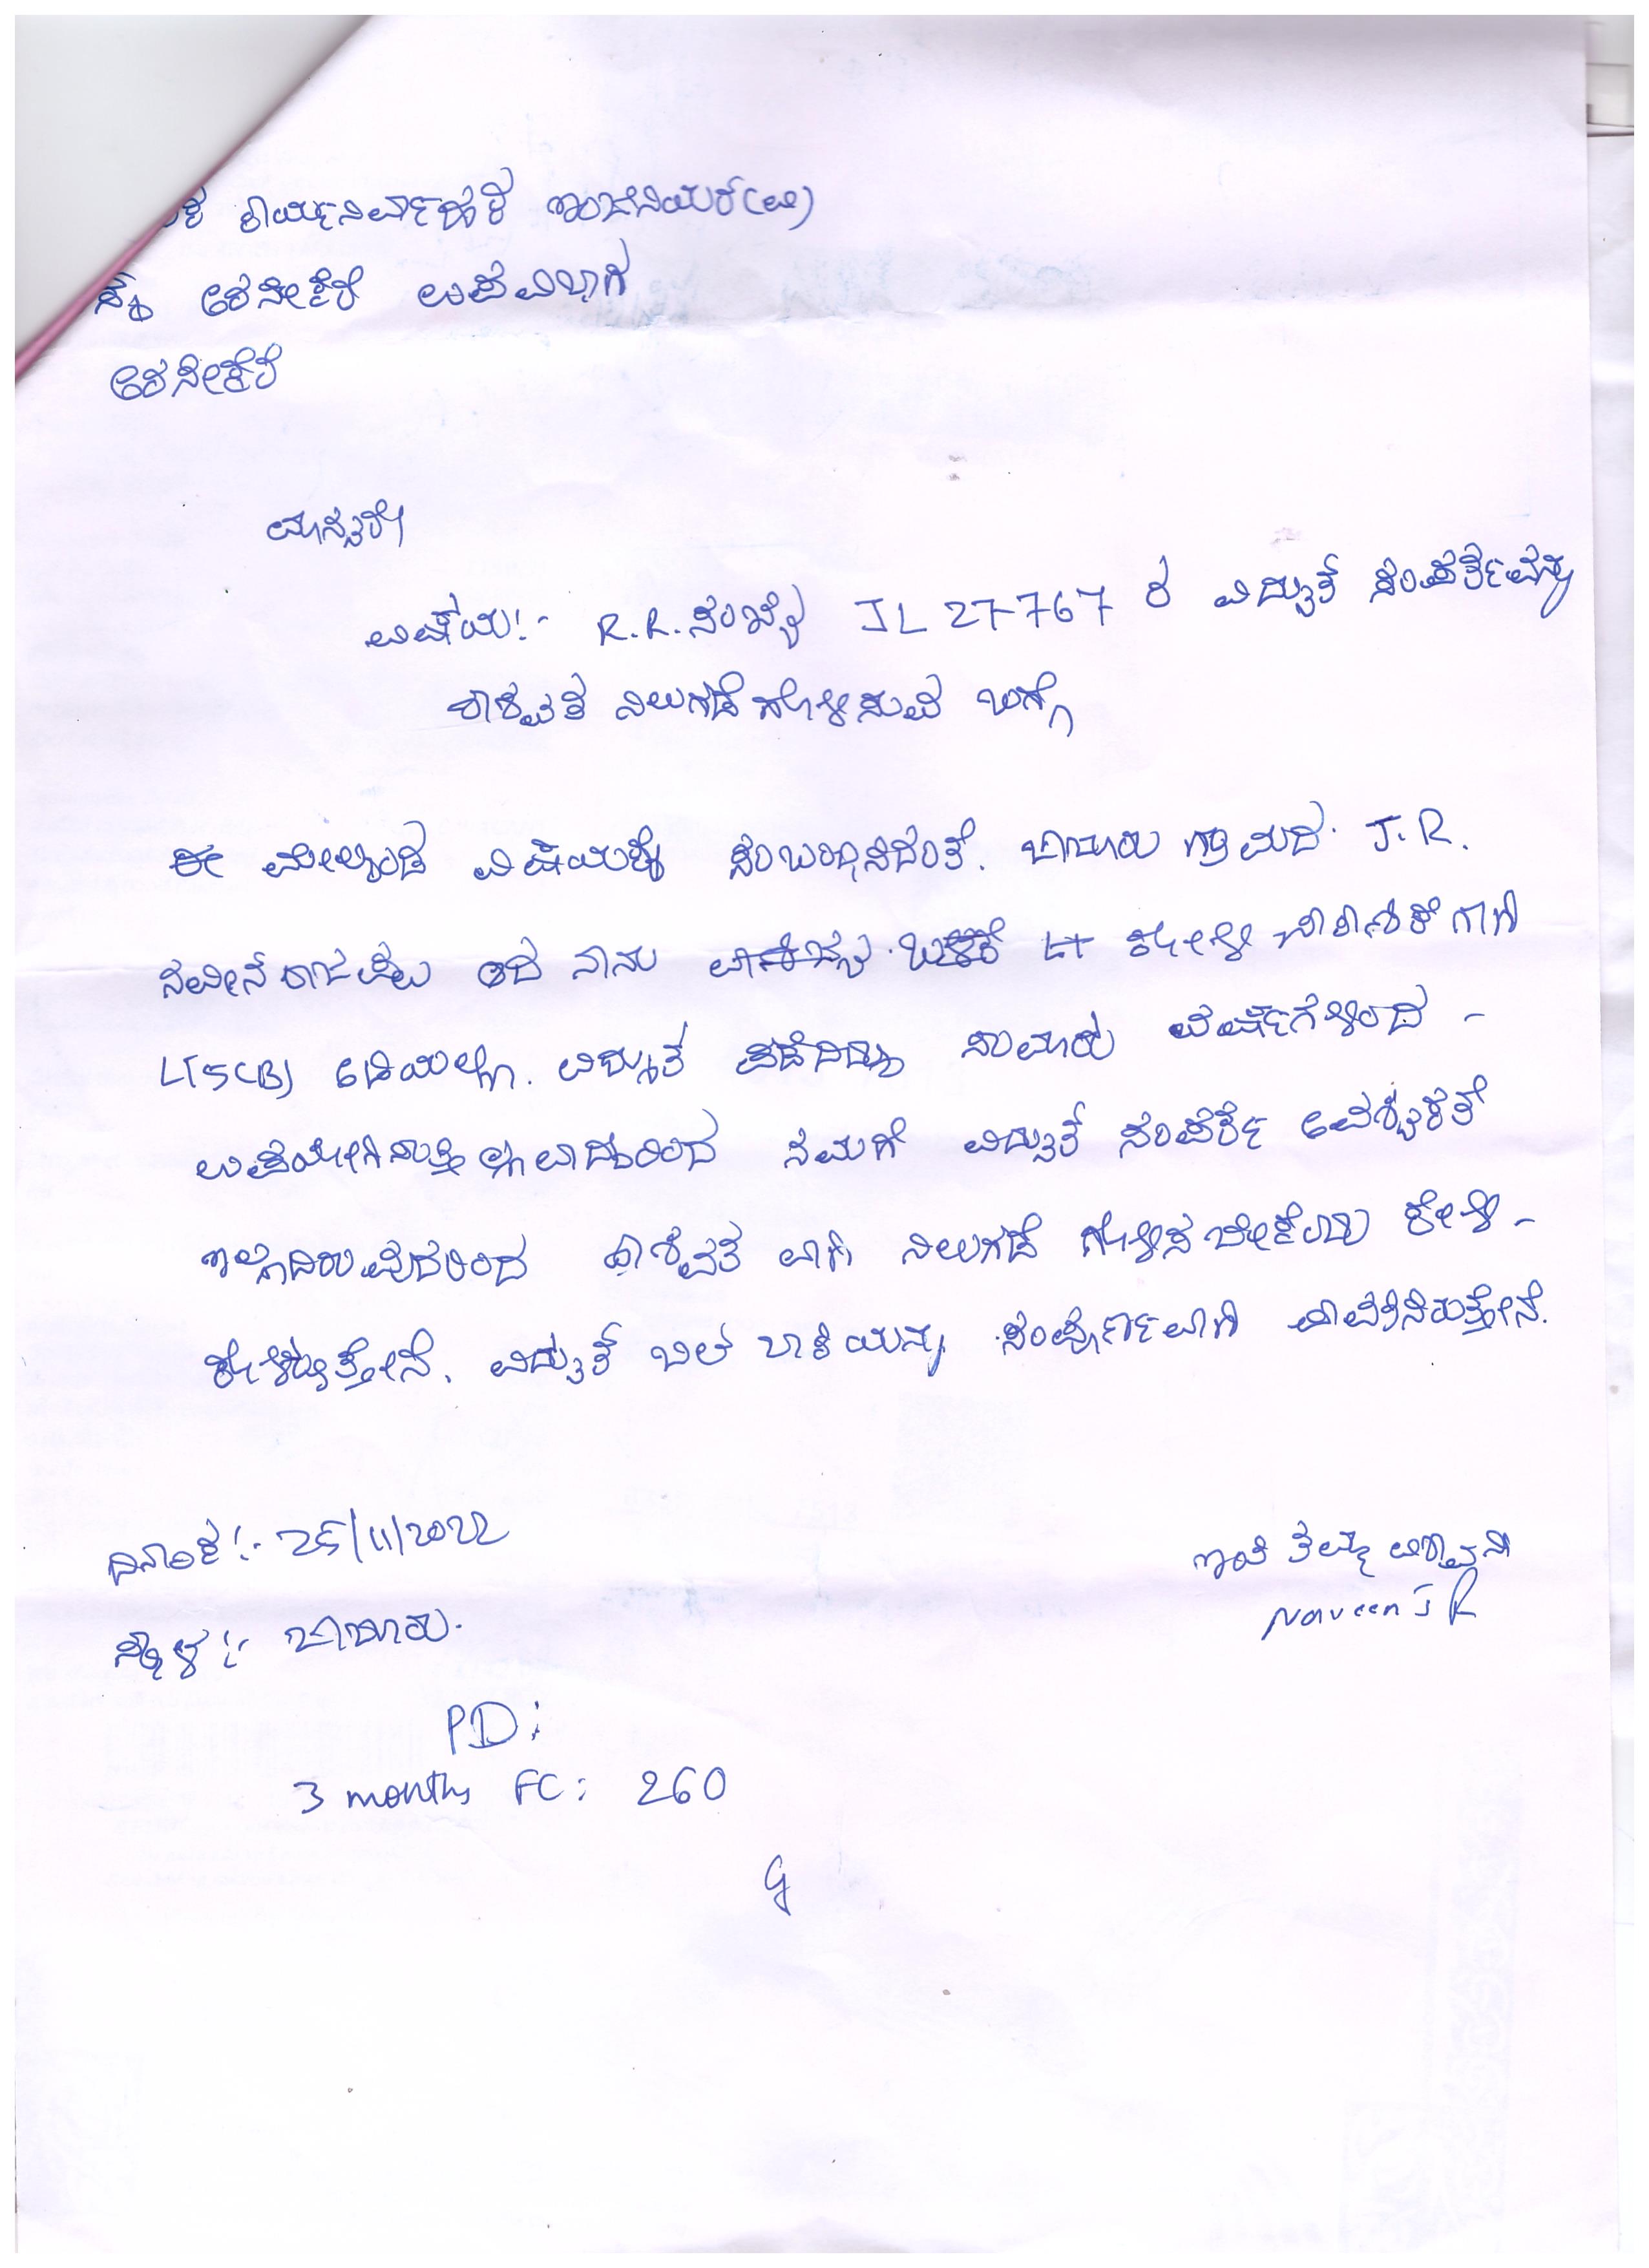 ಕ ಕಾರ್ಯನಿರ್ವಾಹಕ ಇಂಜಿನಿಯರ್(ವಿ)
ಅರಸೀಕೆರೆ ಉಪವಿಭಾಗ
ಅರಸೀಕೆರೆ
ಮಾನ್ಯರೇ
ವಿಷಯ:- R.R.ಸಂಖ್ಯೆ JL 27767 ರ ವಿದ್ಯುತ್ ಸಂಪರ್ಕವನ್ನು
ಶಾಶ್ವತ ನಿಲುಗಡೆಗೊಳಿಸುವ ಬಗ್ಗೆ
ಈ ಮೇಲ್ಕಂಡ ವಿಷಯಕ್ಕೆ ಸಂಬಂಧಿಸಿದಂತೆ. ಗ್ರಾಮದ J.R.
ಆದ ನಾನು ಬಳಕೆ
LT5(B) ಅಡಿಯಲ್ಲಿ. ವಿದ್ಯುತ್ ಪಡೆದಿದ್ದು ಸುಮಾರು ವರ್ಷಗಳಿಂದ -
ಉಪಯೋಗಿಸುತ್ತಿಲ್ಲವಾದ್ದರಿಂದ ನಮಗೆ ವಿದ್ಯುತ್ ಸಂಪರ್ಕ ಅವಶ್ಯಕತೆ
ಇಲ್ಲದಿರುವುದರಿಂದ ಶಾಶ್ವತ ವಾಗಿ ನಿಲುಗಡೆ ಗೊಳಿಸಬೇಕೆಂದು ಕೇಳಿ -
ಕೊಳ್ಳುತ್ತೇನೆ. ವಿದ್ಯುತ್ ಬಿಲ್ ಬಾಕಿಯನ್ನು ಸಂಪೂರ್ಣವಾಗಿ ಪಾವತಿಸಿರುತ್ತೇನೆ.
ದಿನಾಂಕ:- 25/11/2022
ಇಂತಿ ತಮ್ಮ ವಿಶ್ವಾಸಿ
Naveen J R
ಸ್ಥಳ:-
PD:
3 months FC: 260